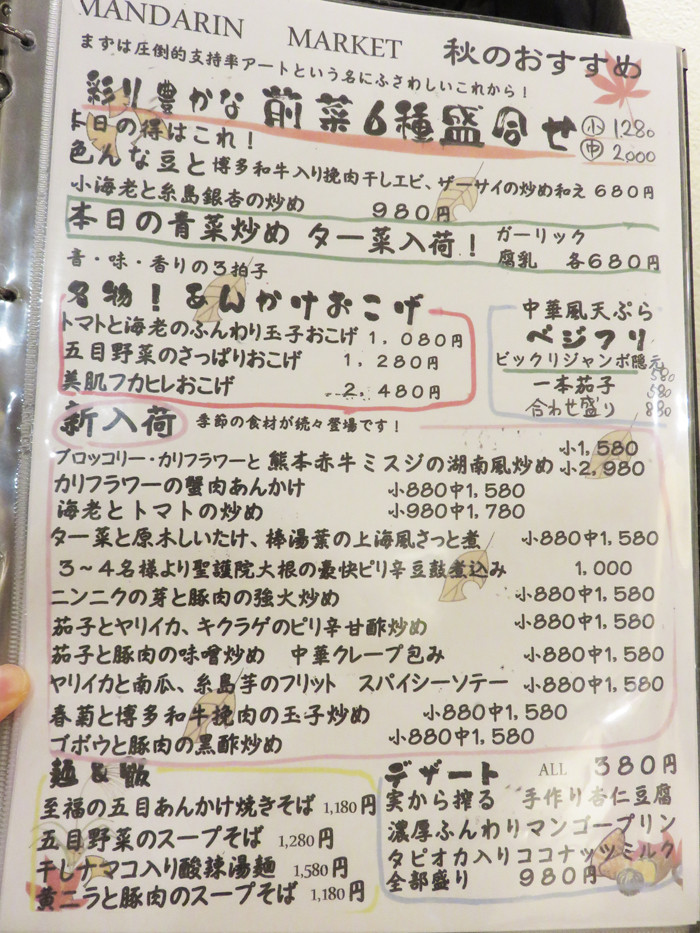 MANDARIN MARKET 秋のおすすめ
まずは圧倒的支持率アートという名にふさわしいこれから！
彩り豊かな 前菜6種盛合せ 小 1,280
中 2,000
本日の得はこれ！
色んな豆と博多和牛入り挽肉干しエビ、ザーサイの炒め和え 680円
小海老と糸島銀杏の炒め 980円
本日の青菜炒め ター菜入荷！ ガーリック
腐乳 各680円
音・味・香りの3拍子
名物！あんかけおこげ
トマトと海老のふんわり玉子おこげ 1,080円
五目野菜のさっぱりおこげ 1,280円
美肌フカヒレおこげ 2,480円
中華風天ぷら
ベジフリ
ビックリジャンボ隠元 580
一本茄子 580
合わせ盛り 880
新入荷 季節の食材が続々登場です！
ブロッコリー・カリフラワーと熊本赤牛ミスジの湖南風炒め 小1,580
小2,980
カリフラワーの蟹肉あんかけ 小880中1,580
海老とトマトの炒め 小980中1,780
ター菜と原木しいたけ、棒湯葉の上海風さっと煮 小880中1,580
3～4名様より聖護院大根の豪快ピリ辛豆鼓煮込み 1,000
ニンニクの芽と豚肉の強火炒め 小880中1,580
茄子とヤリイカ、キクラゲのピリ辛甘酢炒め 小880中1,580
茄子と豚肉の味噌炒め 中華クレープ包み 小880中1,580
ヤリイカと南瓜、糸島芋のフリット スパイシーソテー 小880中1,580
春菊と博多和牛挽肉の玉子炒め 小880中1,580
ゴボウと豚肉の黒酢炒め 小880中1,580
麺&飯
至福の五目あんかけ焼きそば 1,180円
五目野菜のスープそば 1,280円
干しナマコ入り酸辣湯麺 1,580円
黄ニラと豚肉のスープそば 1,180円
デザート ALL 380円
実から搾る 手作り杏仁豆腐
濃厚ふんわりマンゴープリン
タピオカ入りココナッツミルク
全部盛り 980円